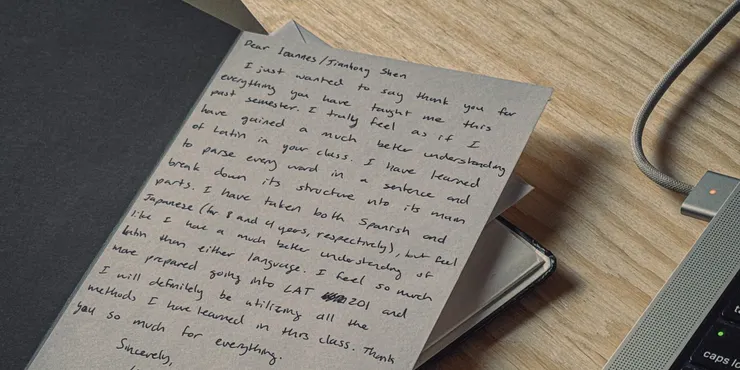 Dear Ioannes/Jianhong Shen
I just wanted to say thank you for
everything you have taught me this
past semester. I truly feel as if I
have gained a much better understanding
of Latin in your class. I have learned
to parse every word in a sentence and
break down its structure into its main
parts. I have taken both Spanish and
Japanese (for 8 and 4 years, respectively), but feel
like I have a much better understanding of
Latin than either language. I feel so much
more prepared going into LAT 201 and
I will definitely be utilizing all the
methods I have learned in this class. Thank
you so much for everything.
Sincerely,
caps lo